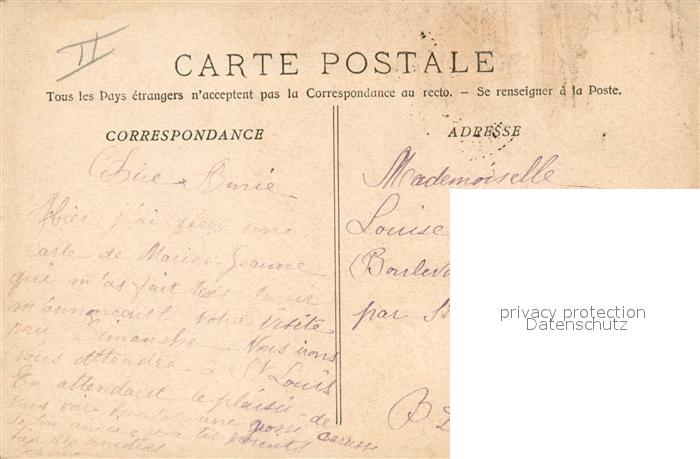 II
CARTE POSTALE
Tous les Pays étrangers n'acceptent pas la Correspondance au recto. – Se renseigner à la Poste.
CORRESPONDANCE
Chère Amie
Hier j'ai reçu une
carte de Marie-Jeanne
qui m'a fait plaisir
m'annonçant votre visite
pour Dimanche. Nous irons
vous attendre à St Louis
En attendant le plaisir de
vous voir une grosse caresse
ADRESSE
Mademoiselle
Louise
Bouleva
par St
privacy protection
Datenschutz